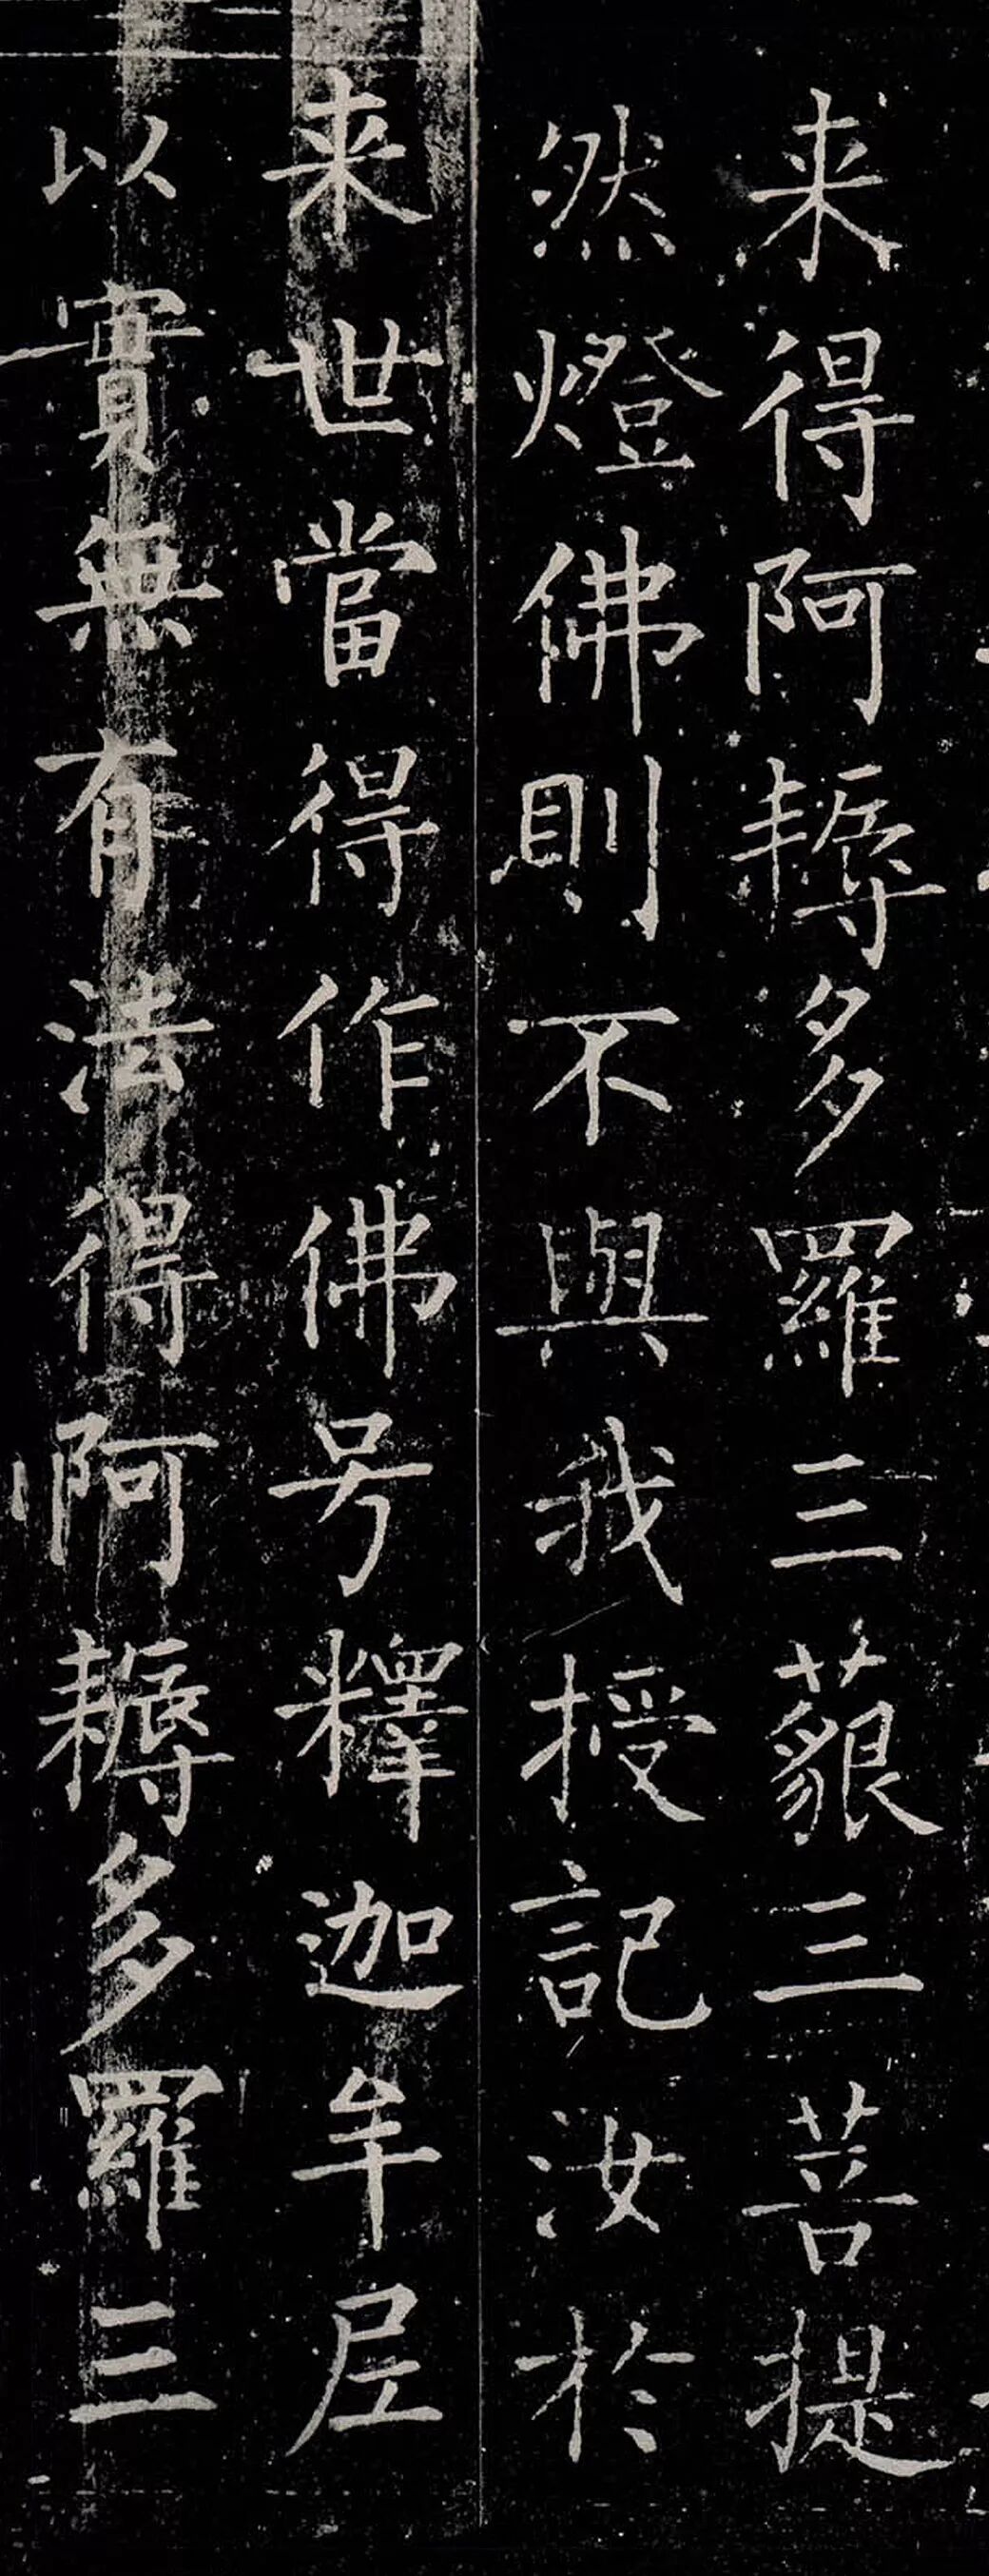 来得阿耨多羅三藐三菩提
然燈佛則不與我授記汝於
来世當得作佛号釋迦牟尼
以實無有法得阿耨多羅三